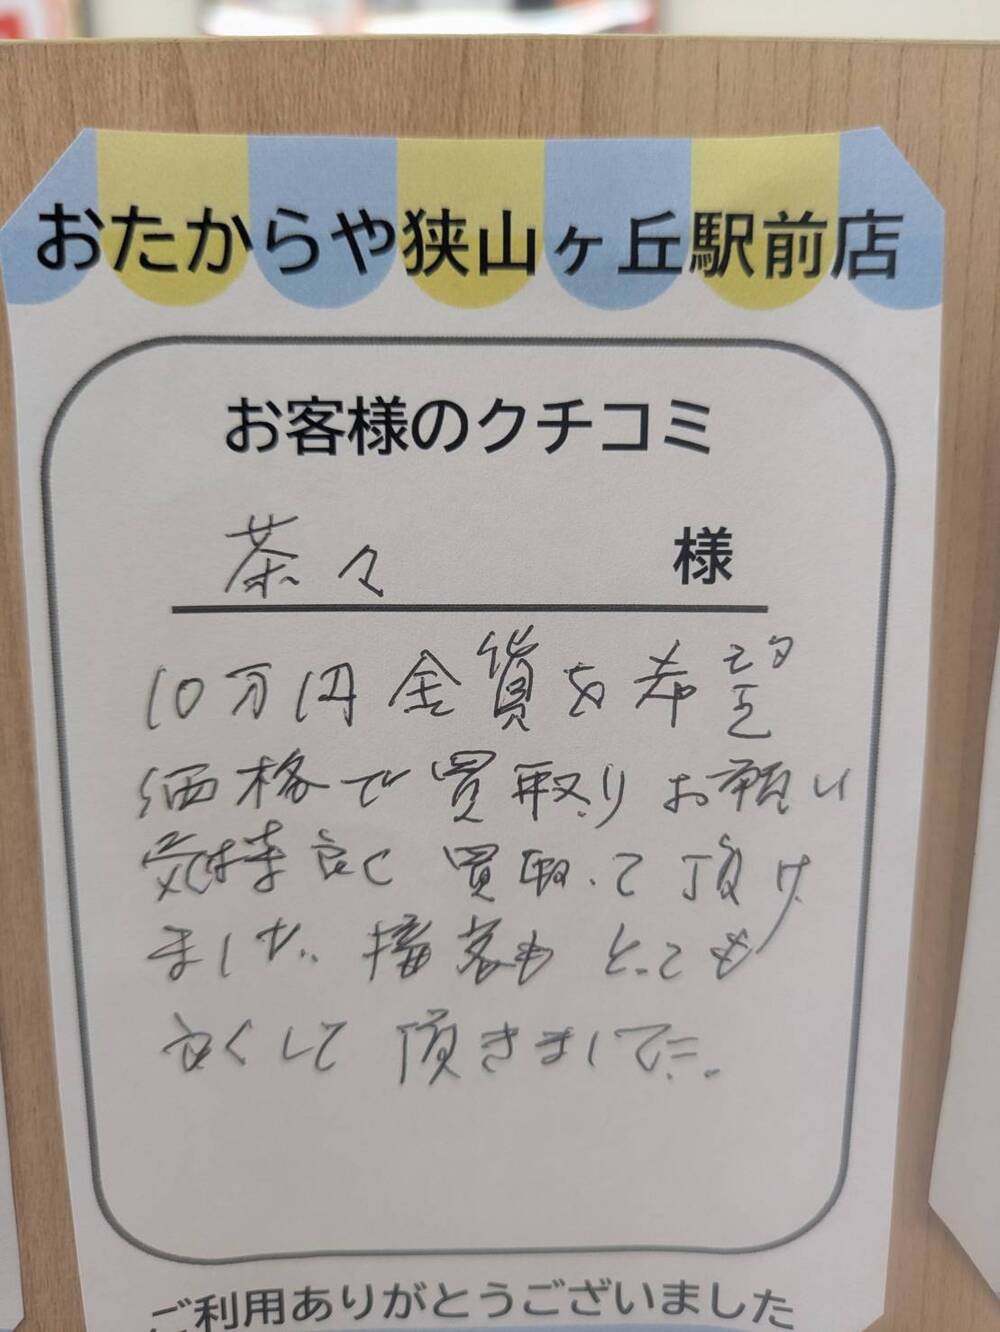 おたからや狭山ヶ丘駅前店
お客様のクチコミ
茶々 様
10万円金貨を希望
価格で買取りお願い
気持良く買取って頂け
ました。接客もとっても
良くして頂きました。
ご利用ありがとうございました